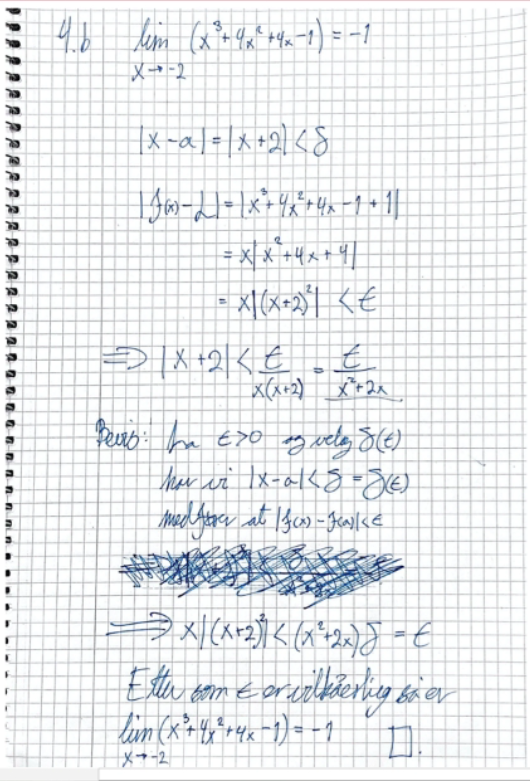 4.b lim (x³+4x²+4x-1) = -1
x→-2
|x-a| = |x+2| < δ
|f(x)-L| = |x³+4x²+4x-1+1|
= x|x²+4x+4|
= x|(x+2)²| < ε
⇒ |x+2| < ε/(x(x+2)) = ε/(x²+2x)
Bevis: La ε>0 og velg δ(ε)
har vi |x-a| < δ = δ(ε)
medfører at |f(x)-f(a)| < ε
⇒ x|(x+2)²| < (x²+2x)δ = ε
Ettersom ε er vilkårlig så er
lim (x³+4x²+4x-1) = -1 □.
x→-2